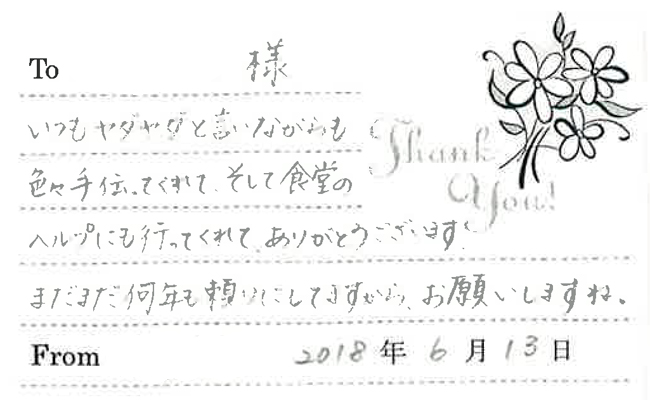 To 様
いつもヤダヤダと言いながらも
色々手伝ってくれて、そして食堂の
ヘルプにも行ってくれて、ありがとうございます!
まだまだ何年も頼りにしてますから、お願いしますね。
Thank
You!
From 2018年6月13日